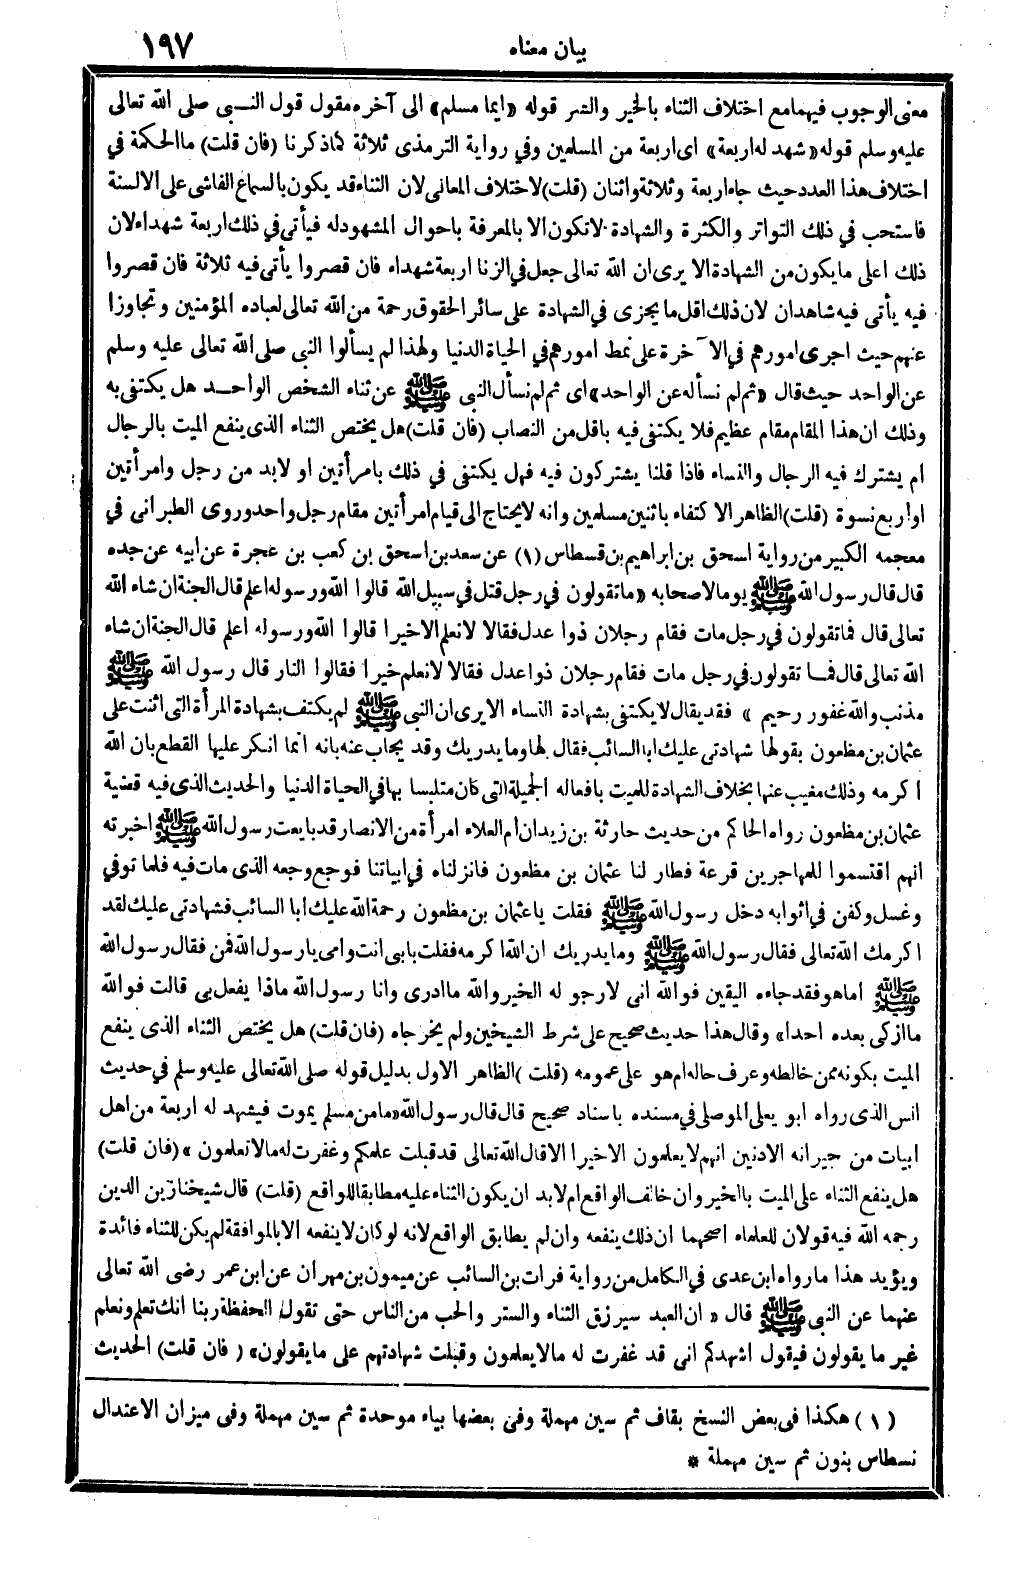 بيان معناه
١٩٧
معنى الوجوب فيهما مع اختلاف الثناء بالخير والشر قوله «ايما مسلم» الى آخره مقول قول النبى صلى الله تعالى
عليه وسلم قوله «شهد له اربعة» اى اربعة من المسلمين وفي رواية الترمذى ثلاثة كما ذكرنا (فان قلت) ما الحكمة في
اختلاف هذا العدد حيث جاء اربعة وثلاثة واثنان (قلت) لاختلاف المعانى لان الثناء قد يكون بالسماع الفاشى على الالسنة
فاستحب في ذلك التواتر والكثرة والشهادة لا تكون الا بالمعرفة باحوال المشهود له فيأتى في ذلك اربعة شهداء لان
ذلك اعلى ما يكون من الشهادة الا يرى ان الله تعالى جعل في الزنا اربعة شهداء فان قصروا يأتى فيه ثلاثة فان قصروا
فيه يأتى فيه شاهدان لان ذلك اقل ما يجزى في الشهادة على سائر الحقوق رحمة من الله تعالى لعباده المؤمنين وتجاوزا
عنهم حيث اجرى امورهم في الآخرة على نمط امورهم في الحياة الدنيا ولهذا لم يسألوا النبى صلى الله تعالى عليه وسلم
عن الواحد حيث قال «ثم لم نسأله عن الواحد» اى ثم لم نسأل النبى ﷺ عن ثناء الشخص الواحد هل يكتفى به
وذلك ان هذا المقام مقام عظيم فلا يكتفى فيه باقل من النصاب (فان قلت) هل يختص الثناء الذى ينفع الميت بالرجال
ام يشترك فيه الرجال والنساء فاذا قلنا يشتركون فيه فهل يكتفى في ذلك بامرأتين او لابد من رجل وامرأتين
او اربع نسوة (قلت) الظاهر الاكتفاء باثنين مسلمين وانه لا يحتاج الى قيام امرأتين مقام رجل واحد وروى الطبرانى في
معجمه الكبير من رواية اسحق بن ابراهيم بن قسطاس (١) عن سعد بن اسحق بن كعب بن عجرة عن ابيه عن جده
قال قال رسول الله ﷺ يوما لاصحابه «ما تقولون في رجل قتل في سبيل الله قالوا الله ورسوله اعلم قال الجنة ان شاء الله
تعالى قال فما تقولون في رجل مات فقام رجلان ذوا عدل فقالا لا نعلم الا خيرا قالوا الله ورسوله اعلم قال الجنة ان شاء
الله تعالى قال فما تقولون في رجل مات فقام رجلان ذوا عدل فقالا لا نعلم خيرا فقالوا النار قال رسول الله ﷺ
مذنب والله غفور رحيم» فقد يقال لا يكتفى بشهادة النساء الا يرى ان النبى ﷺ لم يكتف بشهادة المرأة التى اثنت على
عثمان بن مظعون بقولها شهادتى عليك ابا السائب فقال لها وما يدريك وقد يجاب عنه بانه انما انكر عليها القطع بان الله
اكرمه وذلك مغيب عنها بخلاف الشهادة للميت بافعاله الجميلة التى كان متلبسا بها في الحياة الدنيا والحديث الذى فيه قضية
عثمان بن مظعون رواه الحاكم من حديث حارثة بن زيد ان ام العلاء امرأة من الانصار قد بايعت رسول الله ﷺ اخبرته
انهم اقتسموا للمهاجرين قرعة فطار لنا عثمان بن مظعون فانزلناه في ابياتنا فوجع وجعه الذى مات فيه فلما توفي
وغسل وكفن في اثوابه دخل رسول الله ﷺ فقلت يا عثمان بن مظعون رحمة الله عليك ابا السائب فشهادتى عليك لقد
اكرمك الله تعالى فقال رسول الله ﷺ وما يدريك ان الله اكرمه فقلت بابى انت وامى يا رسول الله فمن فقال رسول الله
ﷺ اما هو فقد جاءه اليقين فو الله انى لارجو له الخير والله ما ادرى وانا رسول الله ماذا يفعل بى قالت فو الله
ما ازكى بعده احدا» وقال هذا حديث صحيح على شرط الشيخين ولم يخرجاه (فان قلت) هل يختص الثناء الذى ينفع
الميت بكونه ممن خالطه وعرف حاله ام هو على عمومه (قلت) الظاهر الاول بدليل قوله صلى الله تعالى عليه وسلم في حديث
انس الذى رواه ابو يعلى الموصلى في مسنده باسناد صحيح قال قال رسول الله «ما من مسلم يموت فيشهد له اربعة من اهل
ابيات من جيرانه الادنين انهم لا يعلمون الا خيرا الا قال الله تعالى قد قبلت علمكم وغفرت له مالا تعلمون» (فان قلت)
هل ينفع الثناء على الميت بالخير وان خالف الواقع ام لابد ان يكون الثناء عليه مطابقا للواقع (قلت) قال شيخنا زين الدين
رحمه الله فيه قولان للعلماء اصحهما ان ذلك ينفعه وان لم يطابق الواقع لانه لو كان لا ينفعه الا بالموافقة لم يكن للثناء فائدة
ويؤيد هذا ما رواه ابن عدى في الكامل من رواية فرات بن السائب عن ميمون بن مهران عن ابن عمر رضى الله تعالى
عنهما عن النبى ﷺ قال «ان العبد سيرزق الثناء والستر والحب من الناس حتى تقول الحفظة ربنا انك تعلم ونعلم
غير ما يقولون فيقول اشهدكم انى قد غفرت له مالا يعلمون وقبلت شهادتهم على ما يقولون» (فان قلت) الحديث
(١) هكذا في بعض النسخ بقاف ثم سين مهملة وفي بعضها بباء موحدة ثم سين مهملة وفي ميزان الاعتدال
نسطاس بنون ثم سين مهملة *